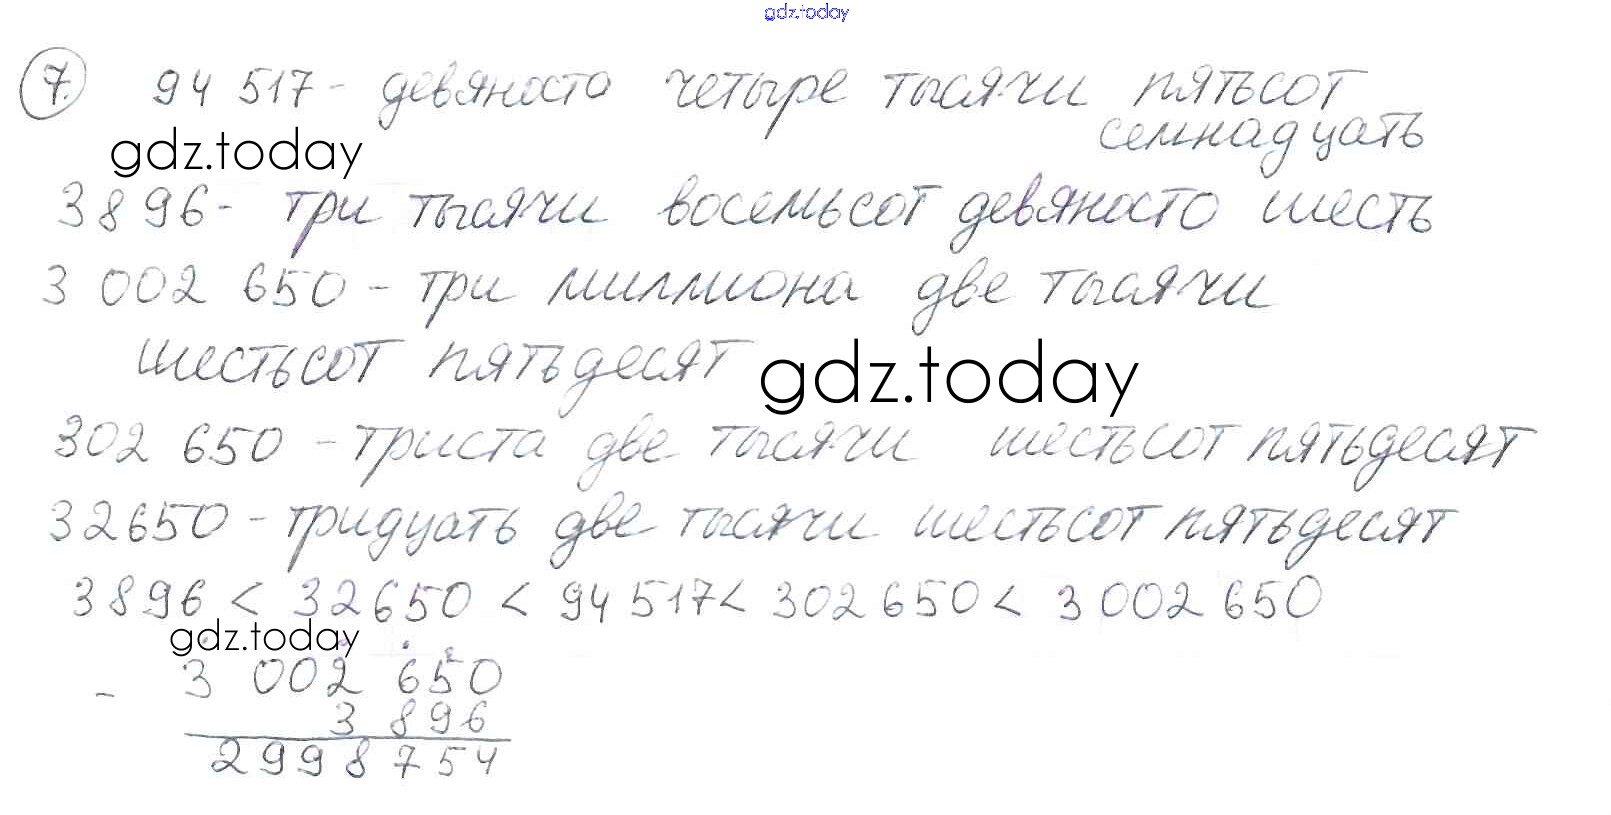 gdz.today
7. 94 517 - девяносто четыре тысячи пятьсот
семнадцать
gdz.today
3896 - три тысячи восемьсот девяносто шесть
3 002 650 - три миллиона две тысячи
шестьсот пятьдесят
gdz.today
302 650 - триста две тысячи шестьсот пятьдесят
32650 - тридцать две тысячи шестьсот пятьдесят
3896 < 32650 < 94517 < 302650 < 3 002 650
gdz.today
- 3 002 650
3 896
2998754